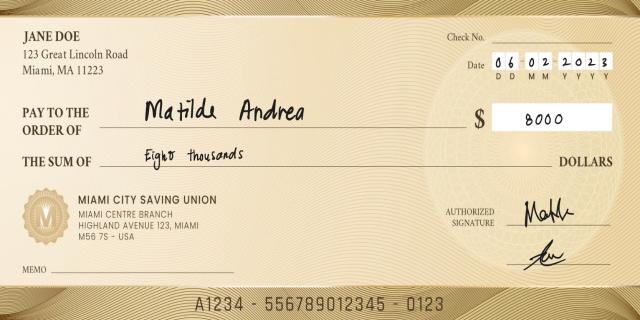 JANE DOE
123 Great Lincoln Road
Miami, MA 11223
Check No.
Date 06 - 02 - 2023
D D M M Y Y Y Y
PAY TO THE
ORDER OF Matilde Andrea $ 8000
THE SUM OF Eight thousands DOLLARS
MIAMI CITY SAVING UNION
MIAMI CENTRE BRANCH
HIGHLAND AVENUE 123, MIAMI
M56 7S - USA
M
AUTHORIZED
SIGNATURE
MEMO
A1234 - 556789012345 - 0123